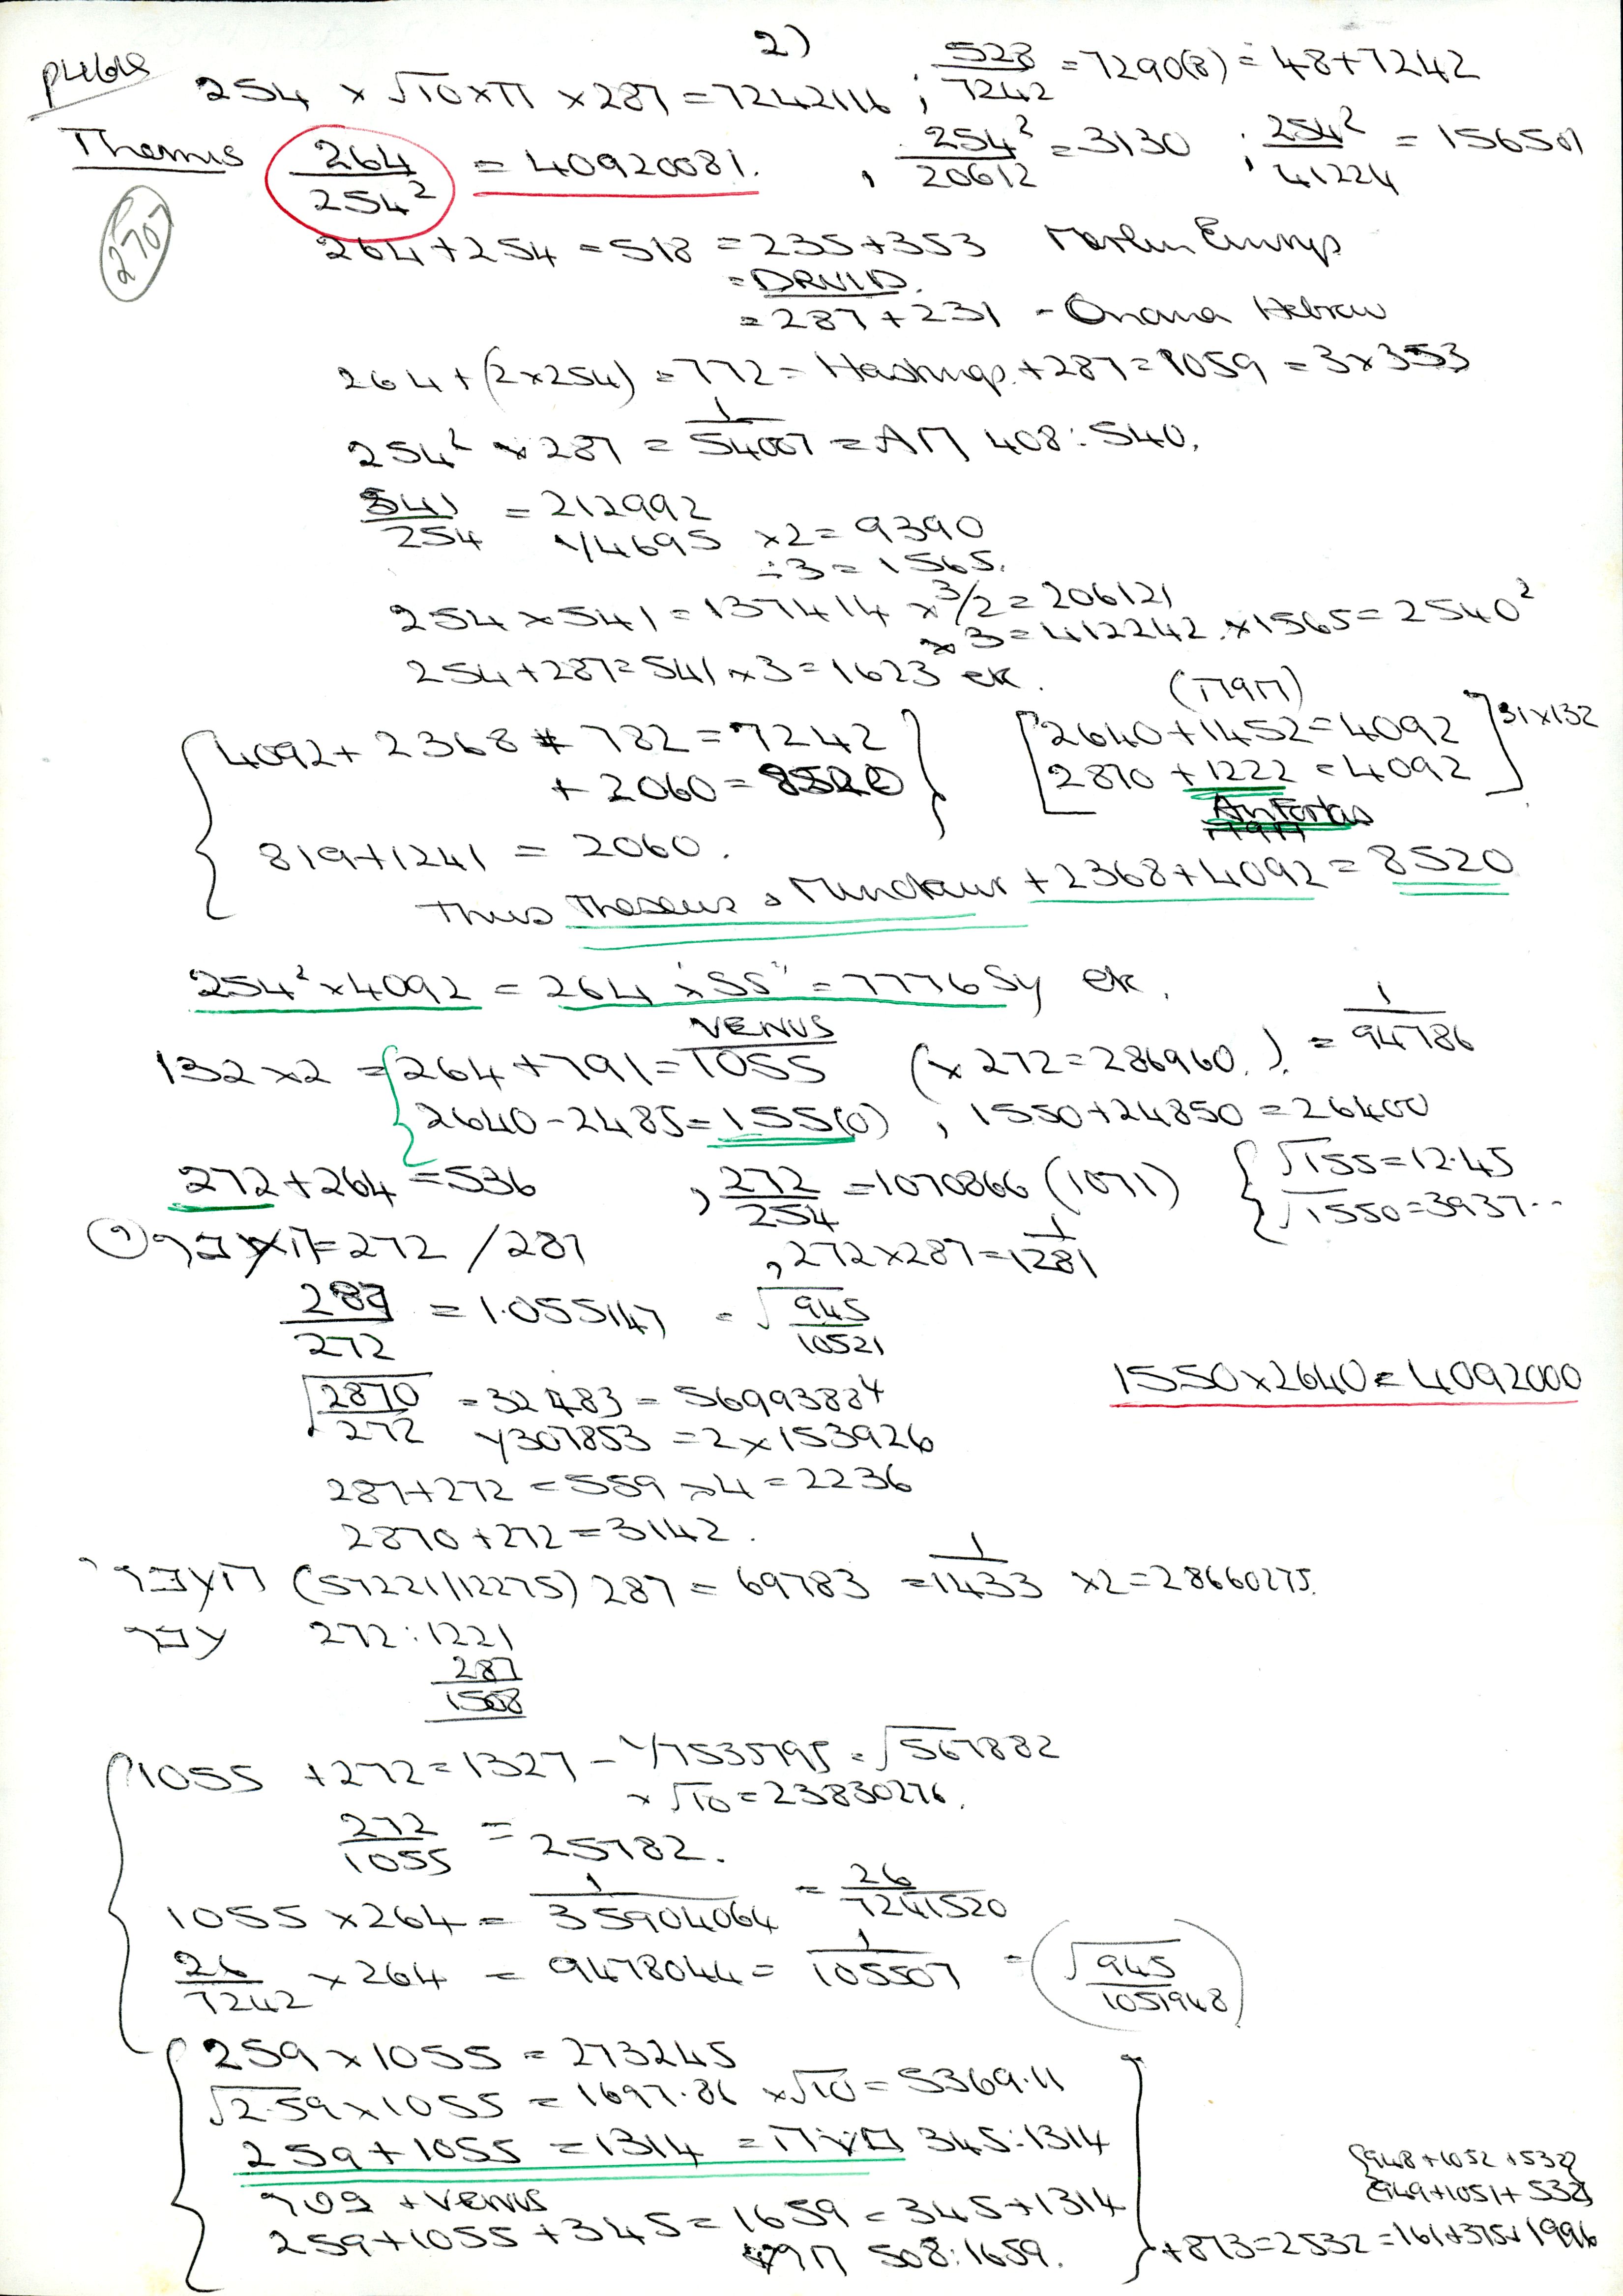 2)
254 × √10 × π × 287 = 7242116 ; 528/7242 = 7290(8) = 48+7242
Themis 264/254² = 40920081. , 254²/20612 = 3130 ; 254²/41224 = 156501
2707
264+254 = 518 = 235+353 Merlin Emrys
= DRUID.
= 287+231 - Hebrew
264+(2×254) = 772 = Hastings. +287 = 1059 = 3×353
254² × 287 = 1/54007 = 408:540.
541/254 = 212992
1/4695 ×2 = 9390
÷3 = 1565.
254×541 = 137414 × 3/2 = 206121
×3 = 412242. ×1565 = 2540²
254+287 = 541 ×3 = 1623 etc.
4092 + 2368 + 782 = 7242
+ 2060 = 8520
[2640+1452 = 4092
2870 + 1222 = 4092] 31×132
Anfortas
819+1241 = 2060.
Thus Theseus & Minotaur +2368+4092 = 8520
254²×4092 = 264 × "55" = 77765y etc.
VENUS
132×2 = {264+791 = 1055 (×272 = 286960.). = 1/94786
2640-2485 = 155(0) , 1550+24850 = 26400
272+264 = 536 , 272/254 = 1070866 (1071) {√155 = 12.45
√1550 = 3937..
= 272 / 287 , 272×287 = 1/1281
287/272 = 1.055147 = √945/10521
√2870/272 = 32483 = 56993884
1/307853 = 2×153926
1550×2640 = 4092000
287+272 = 559 ×4 = 2236
2870+272 = 3142.
(57221/12275) 287 = 69783 = 1/1433 ×2 = 28660275.
272:1221
287
1508
1055 +272 = 1327 - 1/7535795 = √567882
×√10 = 23830276.
272/1055 = 25782.
1055 × 264 = 1/35904064 = 26/7241520
26/7242 × 264 = 9478044 = 1/105507 = (√945/1051948)
259×1055 = 273245
√2.59×1055 = 1697.86 ×√10 = 5369.11
259+1055 = 1314 = 345:1314
+ VENUS
259+1055+345 = 1659 = 345+1314
508:1659.
{948+1052+532}
{949+1051+532}
+873 = 2532 = 161+375+1996